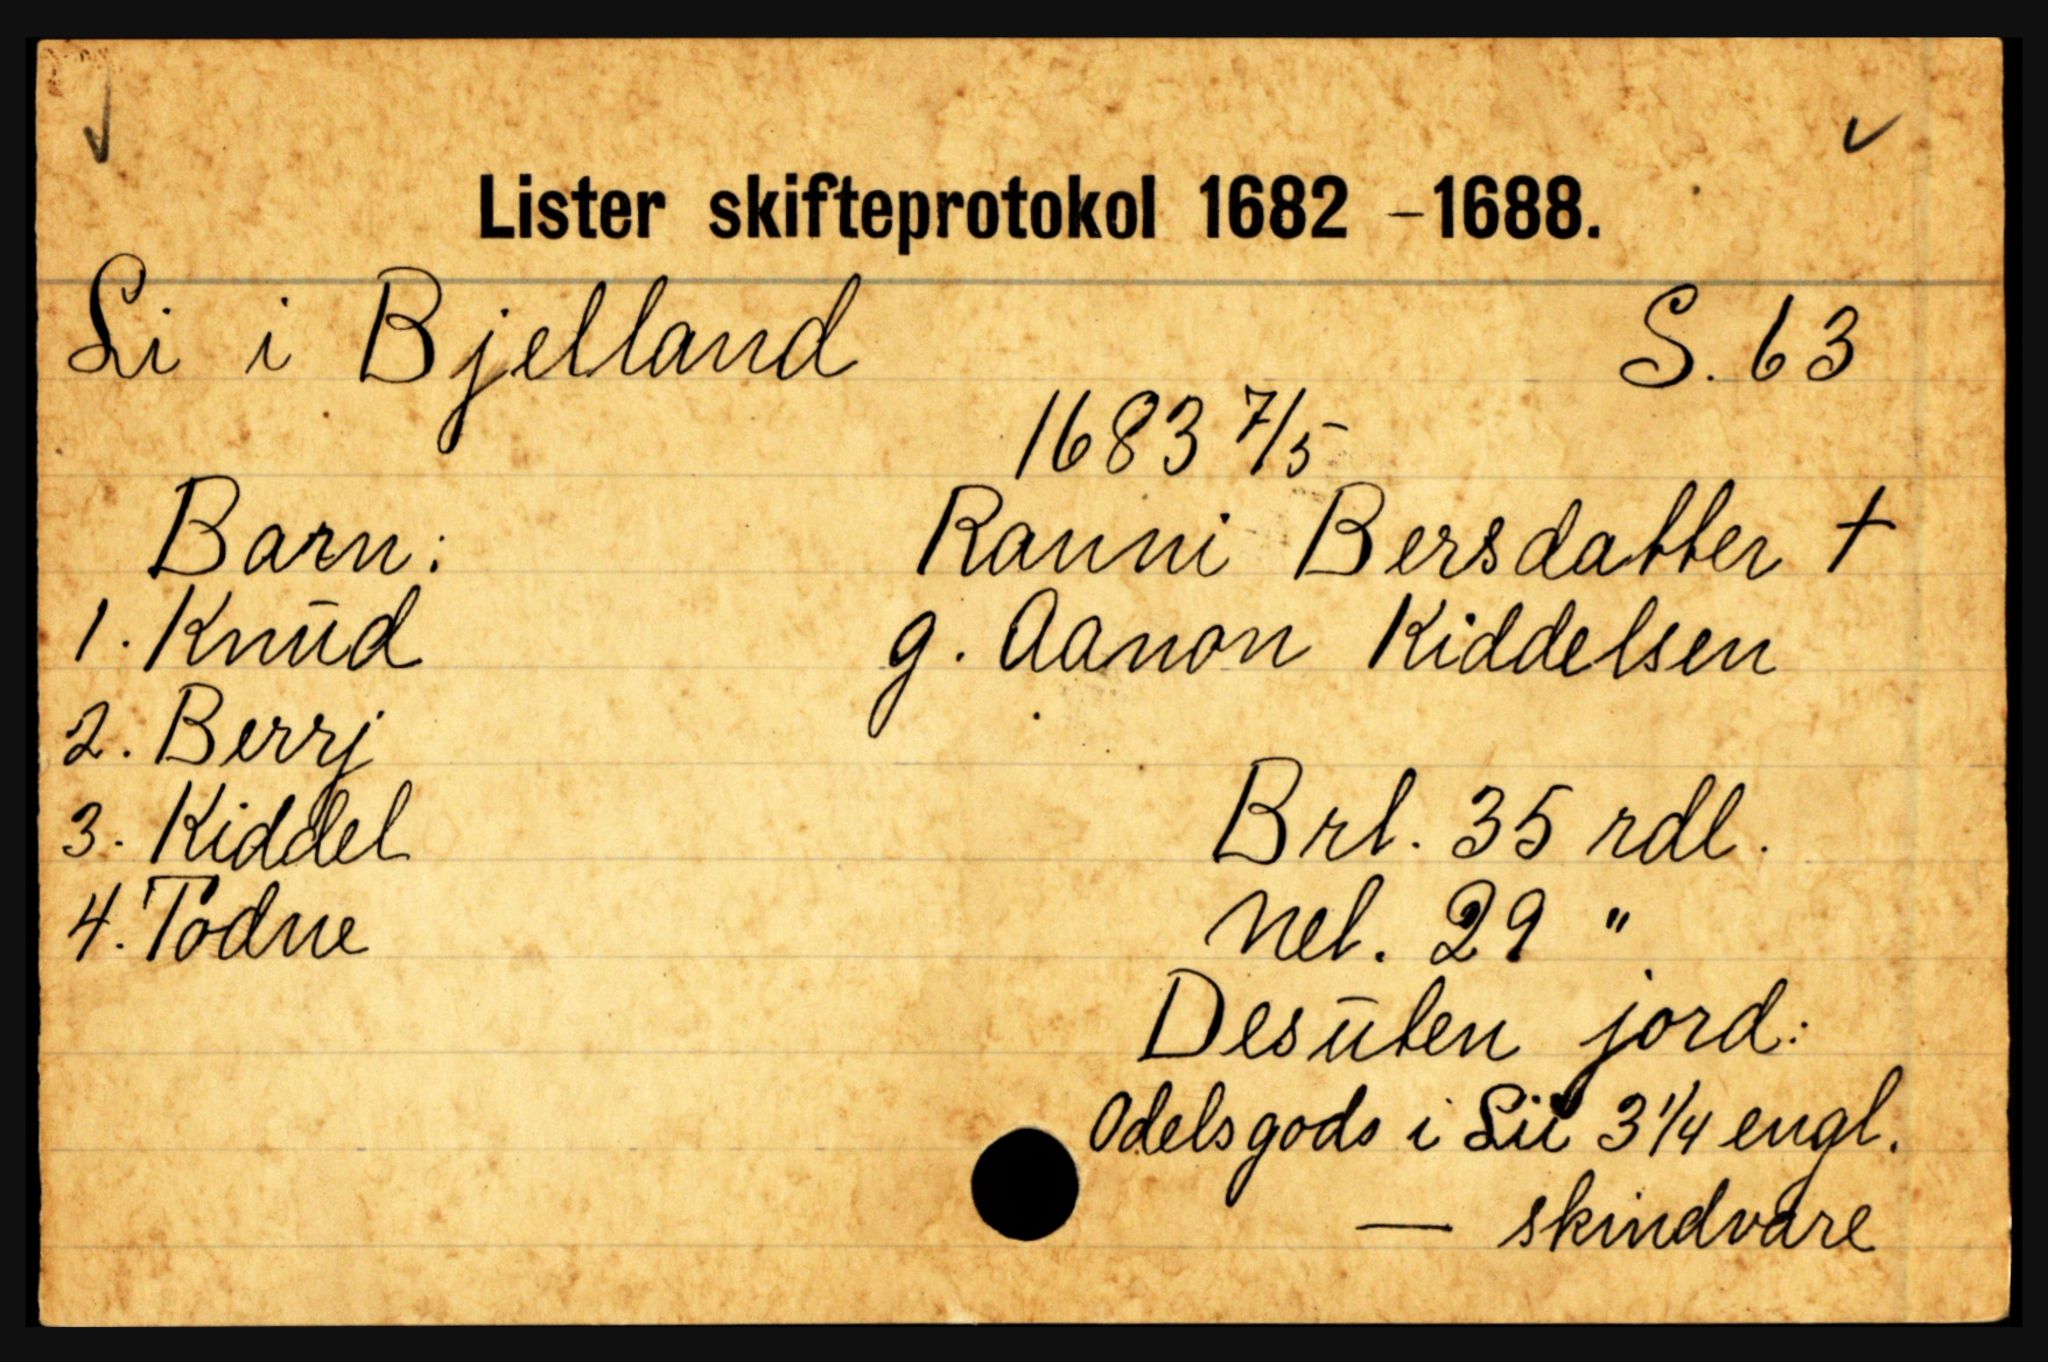 Lister skifteprotokol 1682 - 1688.
Li i Bjelland S. 63
1683 7/5
Ranni Bersdatter †
g. Aanon Kiddelsen
Barn:
1. Knud
2. Berrj
3. Kiddel
4. Todne
Brl. 35 rdl.
Nel. 29 "
Desuten jord:
Odelsgods i Lii 3 1/4 engl.
— skindvare